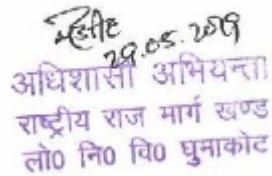 29.05.2019
अधिशासी अभियन्ता
राष्ट्रीय राज मार्ग खण्ड
लो0 नि0 वि0 घुमाकोट